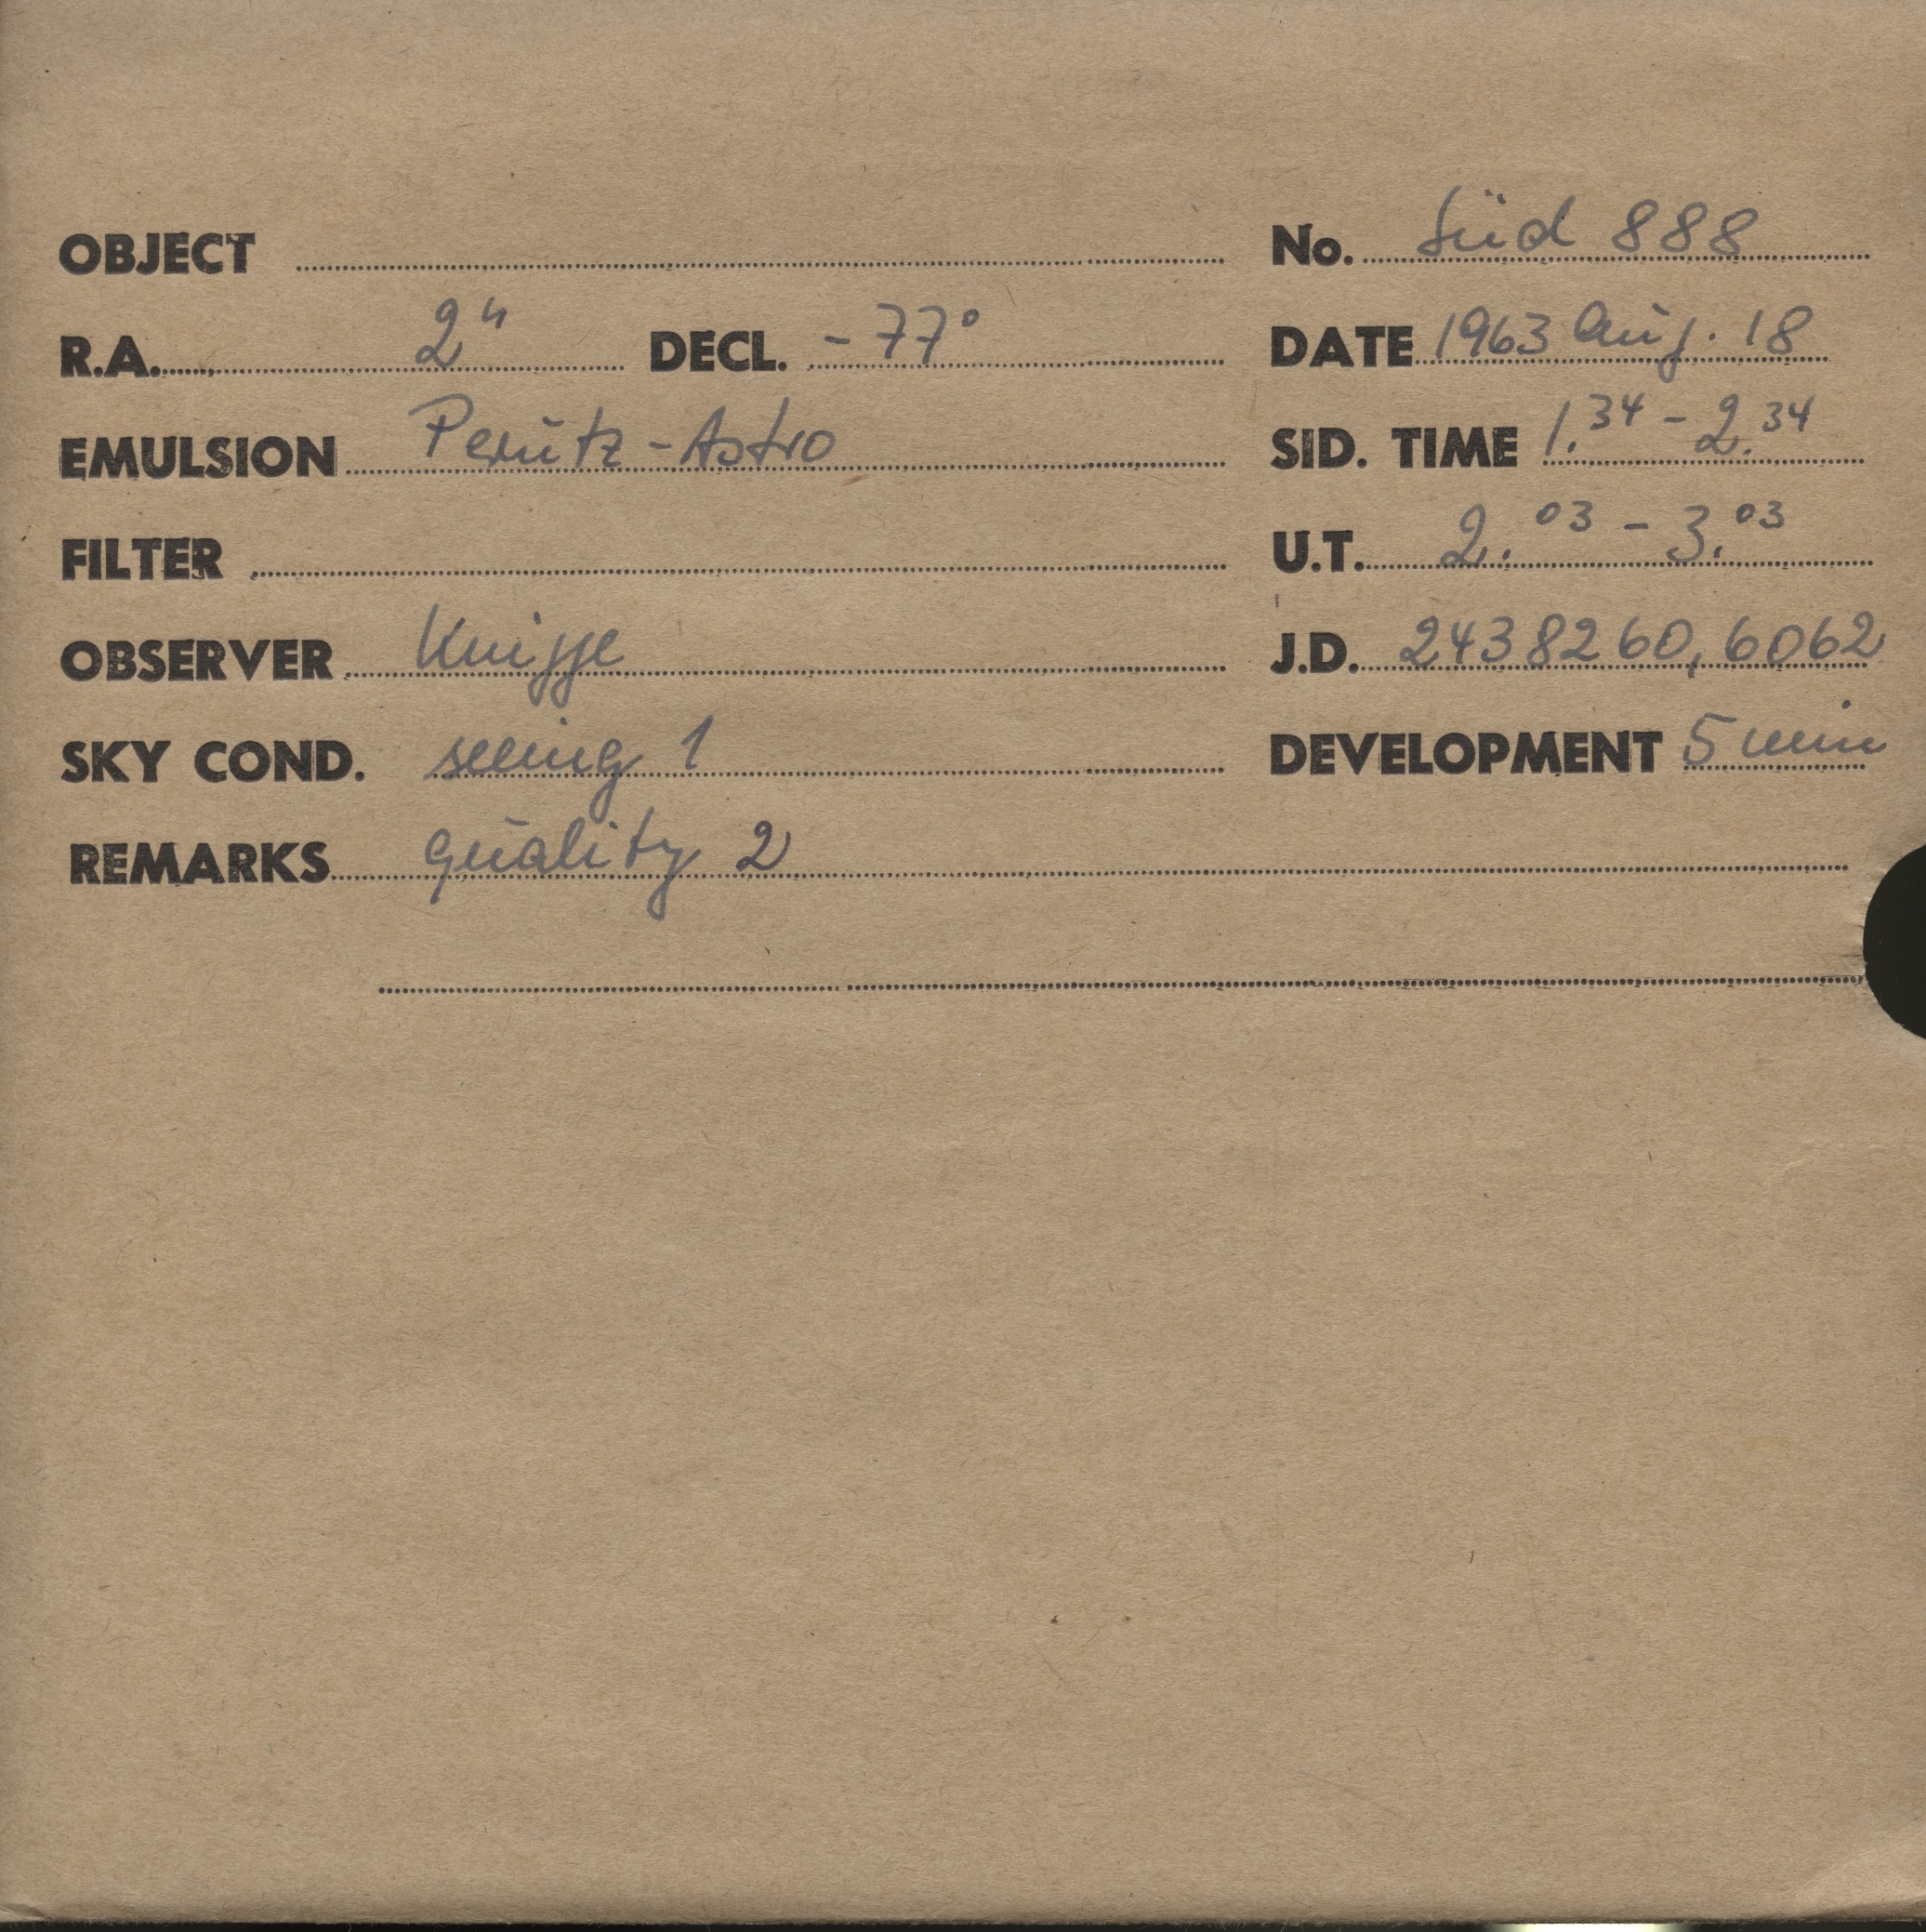 OBJECT No. Süd 888
R.A. 2h DECL. -77° DATE 1963 Aug. 18
EMULSION Perutz-Astro SID. TIME 1.34 - 2.34
FILTER U.T. 2.03 - 3.03
OBSERVER Knigge J.D. 2438260,6062
SKY COND. seeing 1 DEVELOPMENT 5 min
REMARKS quality 2